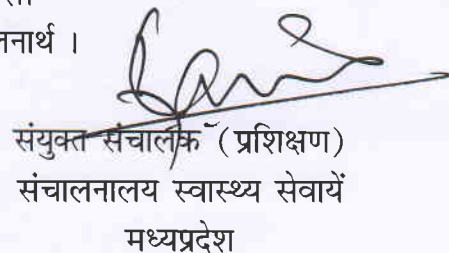 नार्थ ।
संयुक्त संचालक (प्रशिक्षण)
संचालनालय स्वास्थ्य सेवायें
मध्यप्रदेश